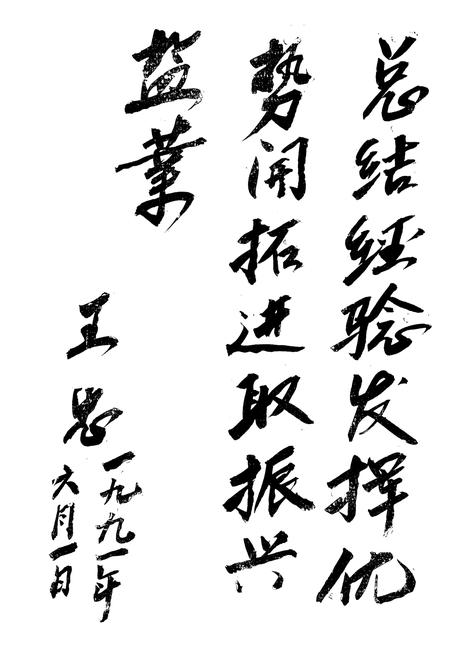 总结经验发挥优
势开拓进取振兴
盐业
王忠
一九九一年
六月一日